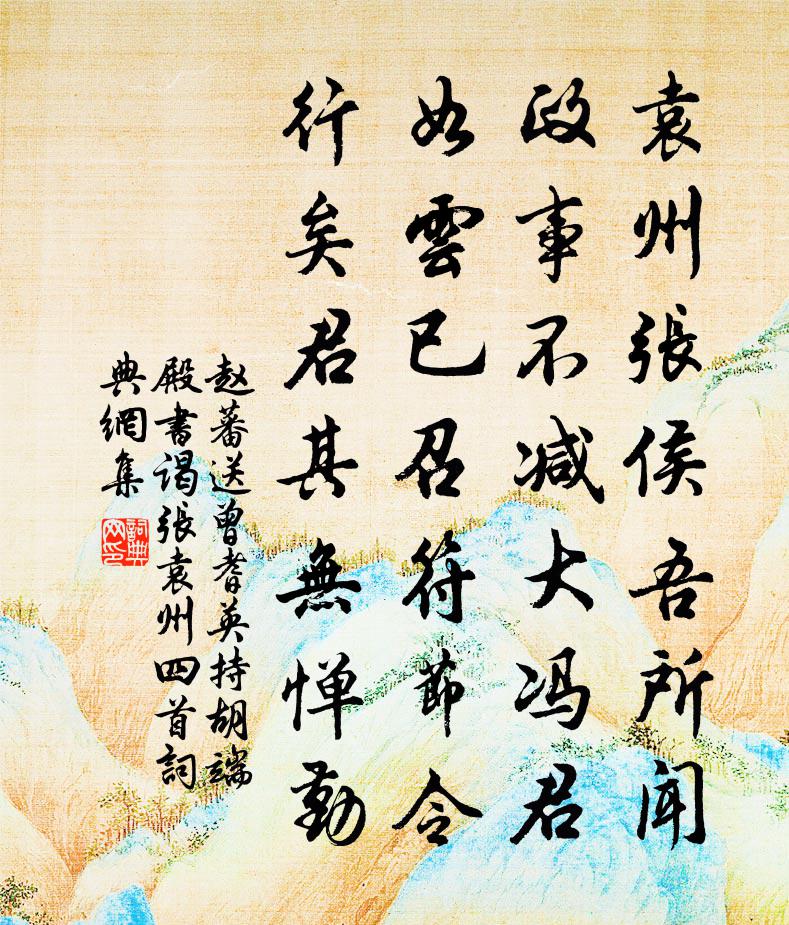 袁州張侯吾所闻
政事不减大冯君
如雲已召符節令
行矣君其無惮勤
赵蕃送曾耆英持胡端
殿書谒张袁州四首詞
典網集
詞典
网印